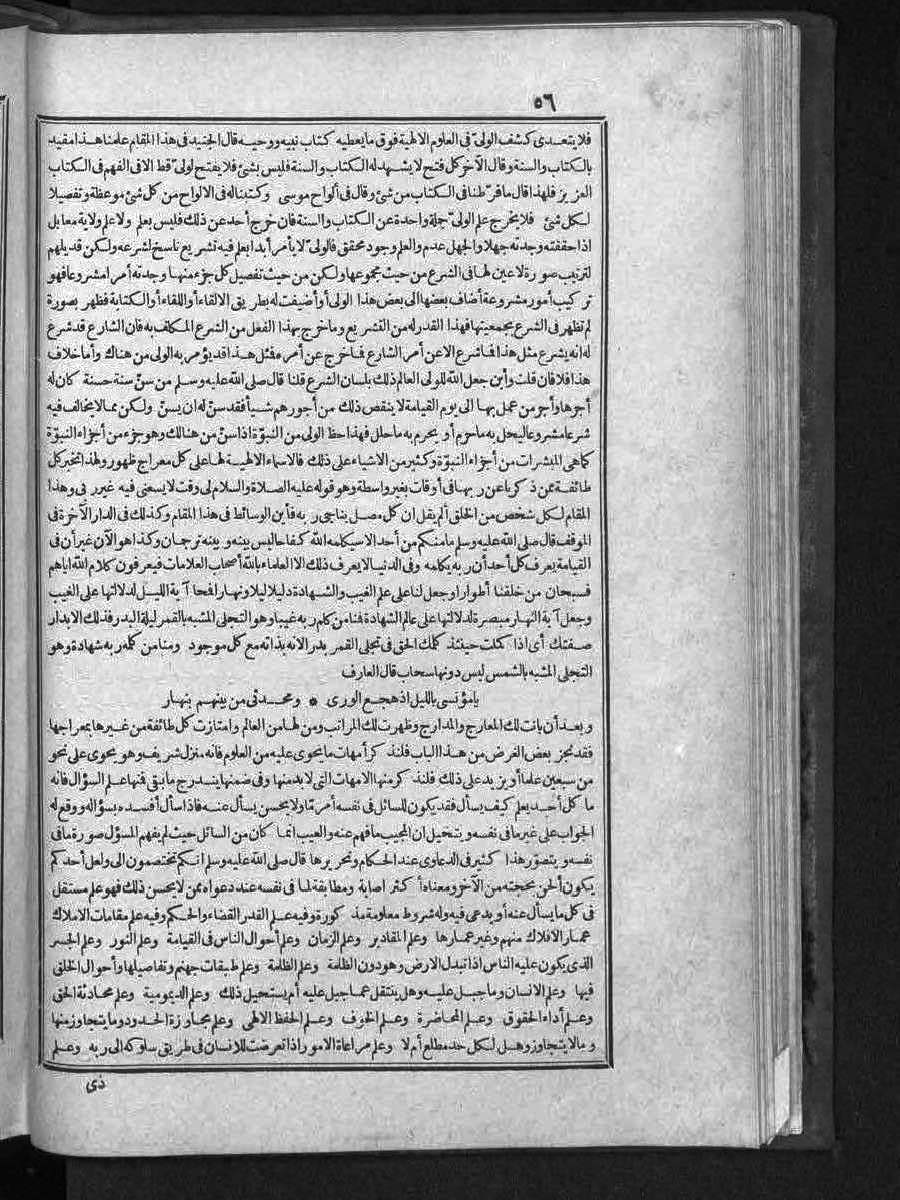 ٥٦
فلا يتعدى كشف الولي فى العلوم الالهية فوق ما يعطيه كتاب نبيه ووحيه قال الجنيد فى هذا المقام علمنا هذا مقيد
بالكتاب والسنة وقال الآخر كل فتح لا يشهد له الكتاب والسنة فليس بشئ فلا يفتح لولى قط الا فى الفهم فى الكتاب
العزيز فلهذا قال ما فرّطنا فى الكتاب من شئ وقال فى ألواح موسى وكتبنا له فى الالواح من كل شئ موعظة وتفصيلا
لكل شئ فلا يخرج علم الولى جلة واحدة عن الكتاب والسنة فان خرج أحد عن ذلك فليس بعلم ولا علم ولاية معا بل
اذا حققته وجدته جهلا والجهل عدم والعلم وجود محقق فالولى لا يأمر أبدا بعلم فيه تشريع ناسخ لشرعه ولكن قد يلهم
لترتيب صورة لا عين لها فى الشرع من حيث مجموعها ولكن من حيث تفصيل كل جزء منها وجدته أمرا مشروعا فهو
تركيب أمور مشروعة أضاف بعضها الى بعض هذا الولى أو أضيفت له بطريق الالقاء أو اللقاء أو الكتابة فظهر بصورة
لم تظهر فى الشرع بجمعيتها فهذا القدر له من التشريع وما خرج بهذا الفعل من الشرع المكلف به فان الشارع قد شرع
له انه يشرع مثل هذا فما شرع الا عن أمر الشارع فما خرج عن أمره فمثل هذا قد يؤمر به الولى من هناك وأما خلاف
هذا فلا فان قلت وأين جعل الله للولى العالم ذلك بلسان الشرع قلنا قال صلى الله عليه وسلم من سنّ سنة حسنة كان له
أجرها وأجر من عمل بها الى يوم القيامة لا ينقص ذلك من أجورهم شيأ فقد سنّ له ان يسنّ ولكن مما لا يخالف فيه
شرعا مشروعا ليحل به ما حرم أو يحرم به ما حلل فهذا حظ الولى من النبوّة اذا سنّ من هنالك وهو جزء من أجزاء النبوّة
كما هى المبشرات من أجزاء النبوّة وكثير من الاشياء على ذلك فالاسماء الالهية لها على كل معراج ظهور ولهذا تخبر كل
طائفة ممن ذكرنا عن ربها فى أوقات بغير واسطة وهو قوله عليه الصلاة والسلام لى وقت لا يسعنى فيه غير ربى وهذا
المقام لكل شخص من الخلق ألم يقل ان كل مصل يناجى ربه فأين الوسائط فى هذا المقام وكذلك فى الدار الآخرة فى
الموقف قال صلى الله عليه وسلم ما منكم من أحد الا سيكلمه الله كفاحا ليس بينه وبينه ترجمان وكذا هو الآن غير أن فى
القيامة يعرف كل أحد أن ربه يكلمه وفى الدنيا لا يعرف ذلك الا العلماء بالله أصحاب العلامات فيعرفون كلام الله اياهم
فسبحان من خلقنا أطوارا وجعل لنا على علم الغيب والشهادة دليلا ليلا ونهارا فمحا آية الليل لدلالتها على الغيب
وجعل آية النهار مبصرة لدلالتها على عالم الشهادة فمنا من كلم ربه غيبا وهو التجلى المشبه بالقمر ليلة البدر فذلك الابدار
صفتك أى اذا كملت حينئذ كلمك الحق فى تجلى القمر بدرا لانه بذاته مع كل موجود ومنا من كلمه ربه شهادة وهو
التجلى المشبه بالشمس ليس دونها سحاب قال العارف
يا مؤنسى بالليل اذ هجع الورى * ومحدثى من بينهم بنهار
وبعد أن بانت لك المعارج والمدارج وظهرت لك المراتب ومن لها من العالم وامتازت كل طائفة من غيرها بمعراجها
فقد نجز بعض الغرض من هذا الباب فلنذكر أمهات ما يحوى عليه من العلوم فانه منزل شريف وهو يحوى على نحو
من سبعين علما أو يزيد على ذلك فلنذكر منها الامهات التى لا بد منها وفى ضمنها يندرج ما بقى فمنها علم السؤال فانه
ما كل أحد يعلم كيف يسأل فقد يكون للسائل فى نفسه أمر تما ولا يحسن يسأل عنه فاذا سأل أفسده بسؤاله ووقع له
الجواب على غير ما فى نفسه ويتخيل ان المجيب ما فهم عنه والعيب انما كان من السائل حيث لم يفهم المسؤل صورة ما فى
نفسه ويتصوّر هذا كثير فى الدعاوى عند الحكام وتحريرها قال صلى الله عليه وسلم انكم تختصمون الى ولعل أحدكم
يكون ألحن بحجته من الآخر ومعناه أكثر اصابة ومطابقة لما فى نفسه عنده دعواه ممن لا يحسن ذلك فهو علم مستقل
فى كل ما يسأل عنه أو يدعى فيه وله شروط معلومة مذكورة وفيه علم القدر القضاء والحكم وفيه علم مقامات الاملاك
عمار الافلاك منهم وغير عمارها وعلم المقادير وعلم الزمان وعلم أحوال الناس فى القيامة وعلم النور وعلم الجسر
الذى يكون عليه الناس اذا تبدل الارض وهو دون الظلمة وعلم الظلمة وعلم طبقات جهنم وتفاصيلها وأحوال الخلق
فيها وعلم الانسان وما جبل عليه وهل ينتقل عما جبل عليه أم يستحيل ذلك وعلم الديمومية وعلم محادثة الحق
وعلم أداء الحقوق وعلم المحاضرة وعلم الخوف وعلم الحفظ الالهى وعلم مجاوزة الحدود وما يتجاوز منها
وما لا يتجاوز وهل لكل حد مطلع أم لا وعلم مراعاة الامور اذا تعرضت للانسان فى طريق سلوكه الى ربه وعلم
ذى